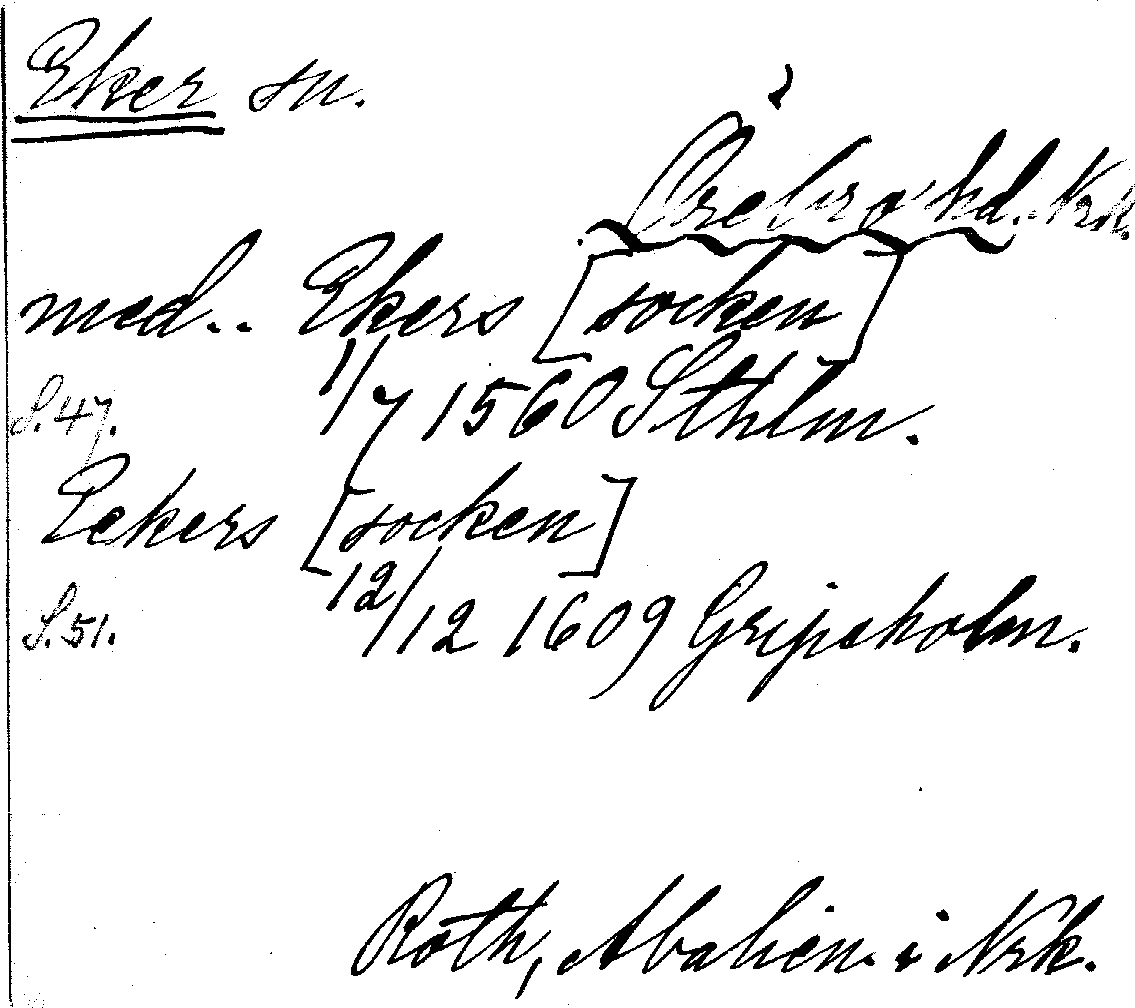 Eker sn.
Örebro hd. Nrk.
med.. Ekers [socken]
S. 47. 1/7 1560 Sthlm.
Eekers [socken]
S. 51. 12/12 1609 Gripsholm.
Roth, Abalien. i Nrk.